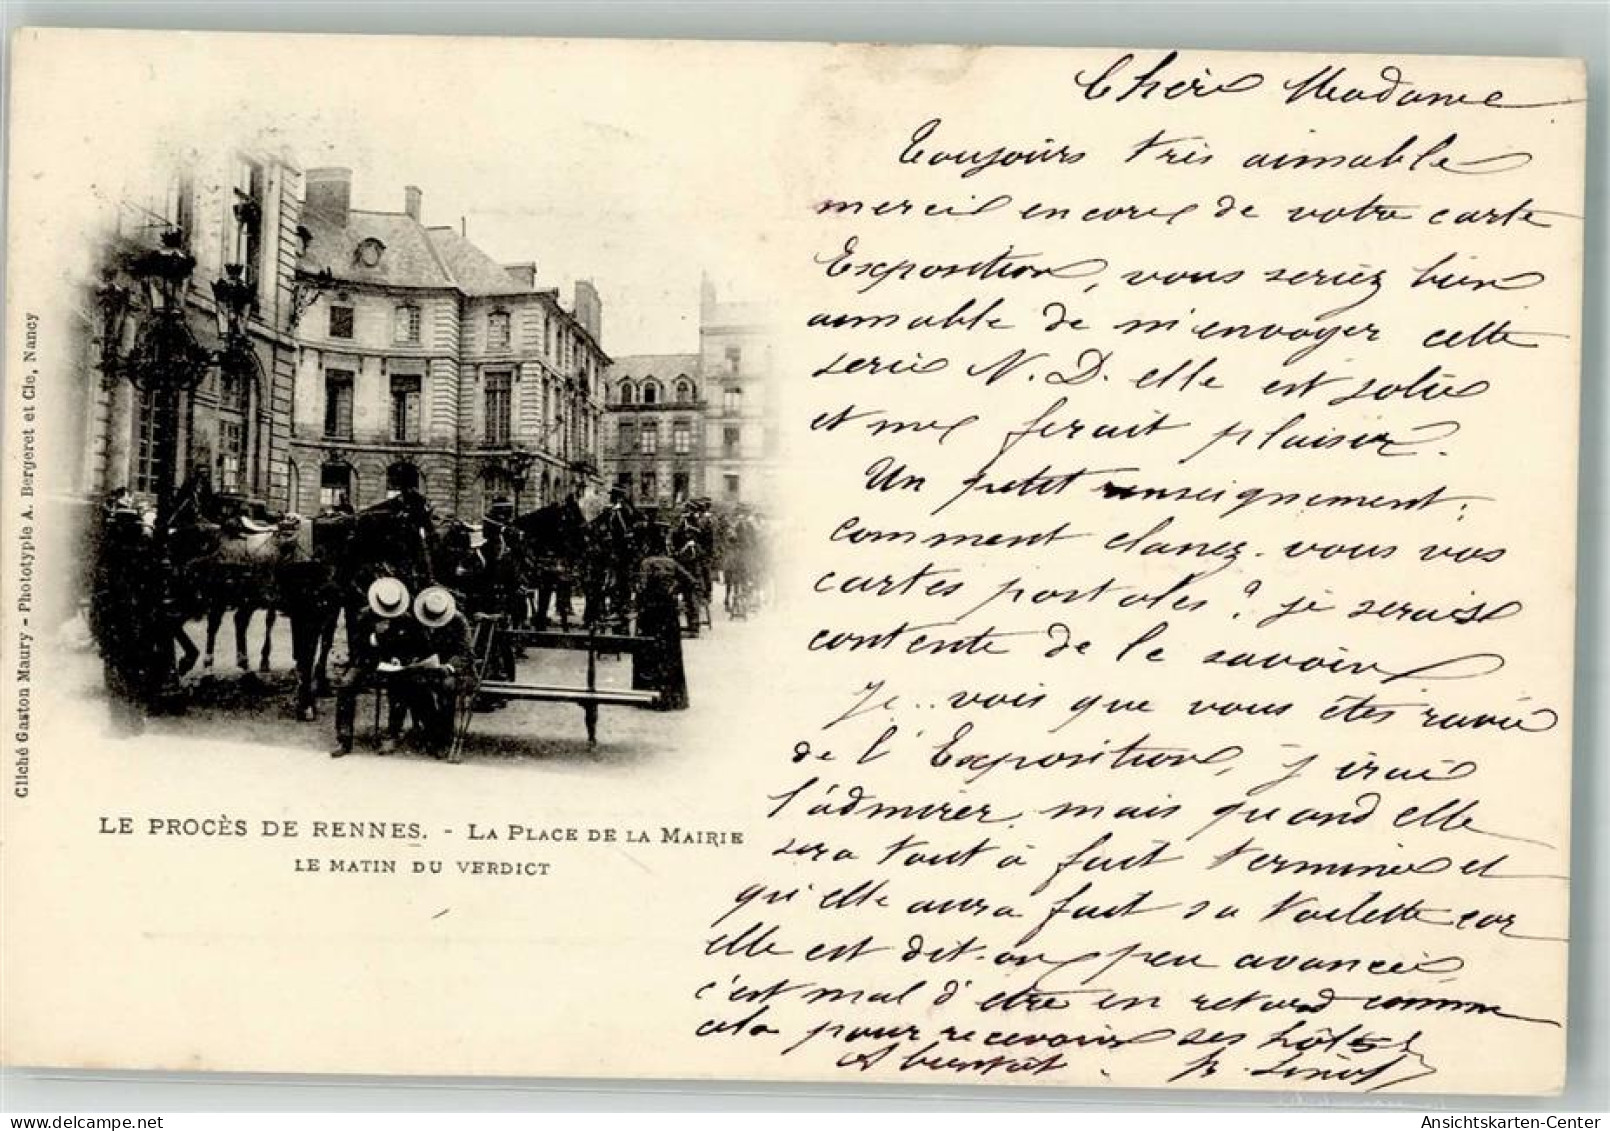 Cliché Gaston Maury - Phototypie A. Bergeret et Cie, Nancy
LE PROCÈS DE RENNES. - LA PLACE DE LA MAIRIE
LE MATIN DU VERDICT
Chère Madame
Toujours très aimable
merci encore de votre carte
Exposition, vous seriez bien
aimable de m'envoyer cette
serie N. D. elle est jolie
et me ferait plaisir.
Un petit renseignement:
comment classez-vous vos
cartes postales? je serais
contente de le savoir
Je vois que vous êtes ravie
de l'Exposition, j'irai
l'admirer mais quand elle
sera tout à fait terminée et
qu'elle aura fait sa toilette car
elle est dit-on peu avancée
c'est mal d'être en retard comme
cela pour recevoir ses hôtes
A bientôt.
Ansichtskarten-Center